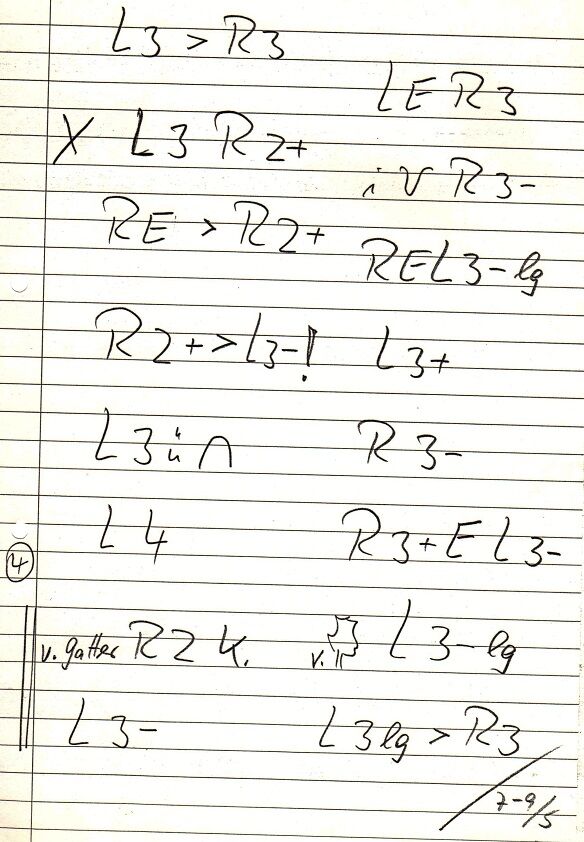 L3 > R3
X L3 R2+
RE > R2+
R2+ > L3-!
L3 ü ∩
L4
④
v. Gatter R2 k.
L3-
LE R3
i V R3-
REL3-lg
L3+
R3-
R3+ E L3-
v. L3-lg
L3lg > R3
7-9/5